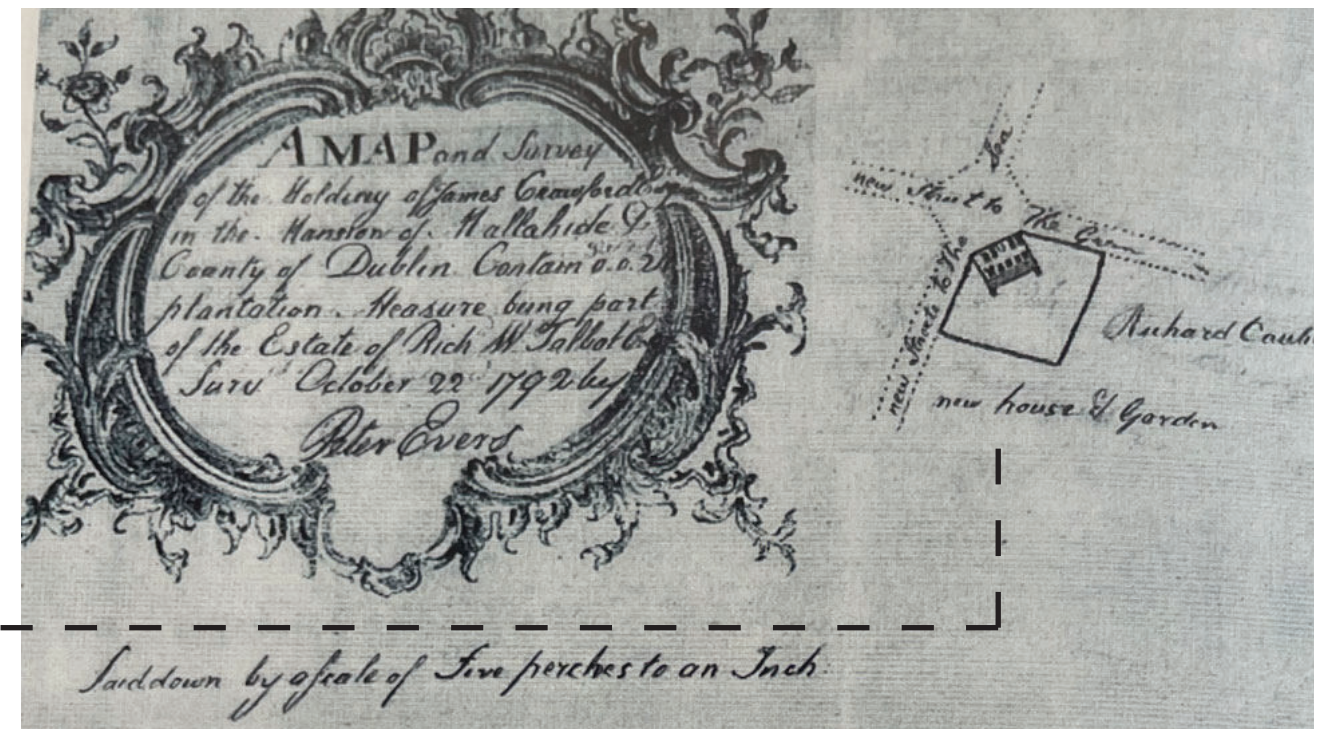 A MAP and Survey
of the Holding of James Crawford
in the Manston of Mallahide &
County of Dublin Contain 0.0.2
plantation. Measure being part
of the Estate of Rich W. Talbot
Surv October 22 1792 by
Peter Evers
Sea
new Street to The Green
new Street to The
new house & Garden
Laid down by a scale of Five perches to an Inch